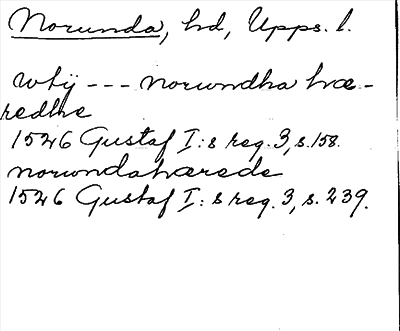 Norunda, hd, Upps. l.
wtij --- norwndha hæ-
redhe
1526 Gustaf I:s reg. 3, s. 158.
norwndahærede
1526 Gustaf I:s reg. 3, s. 239.